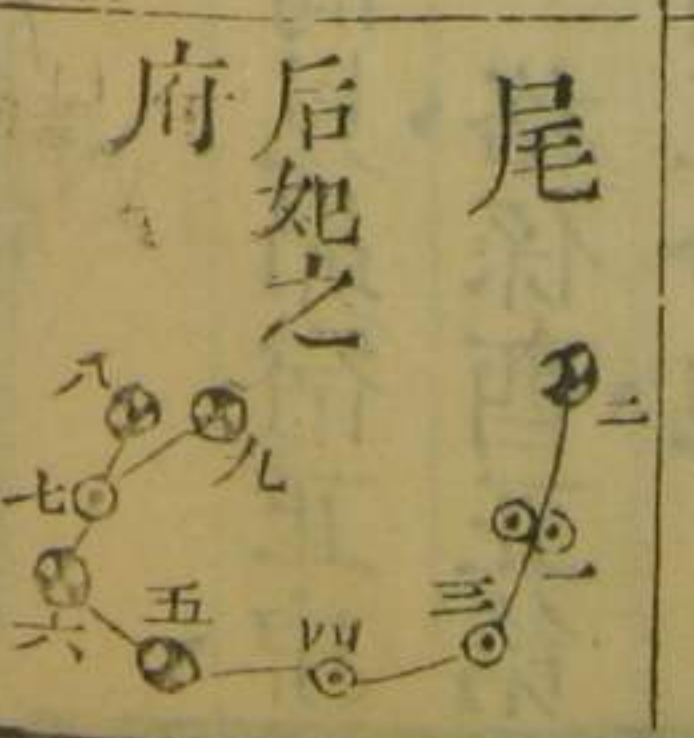 尾
后妃之
府
二
一
三
四
五
六
七
八
九